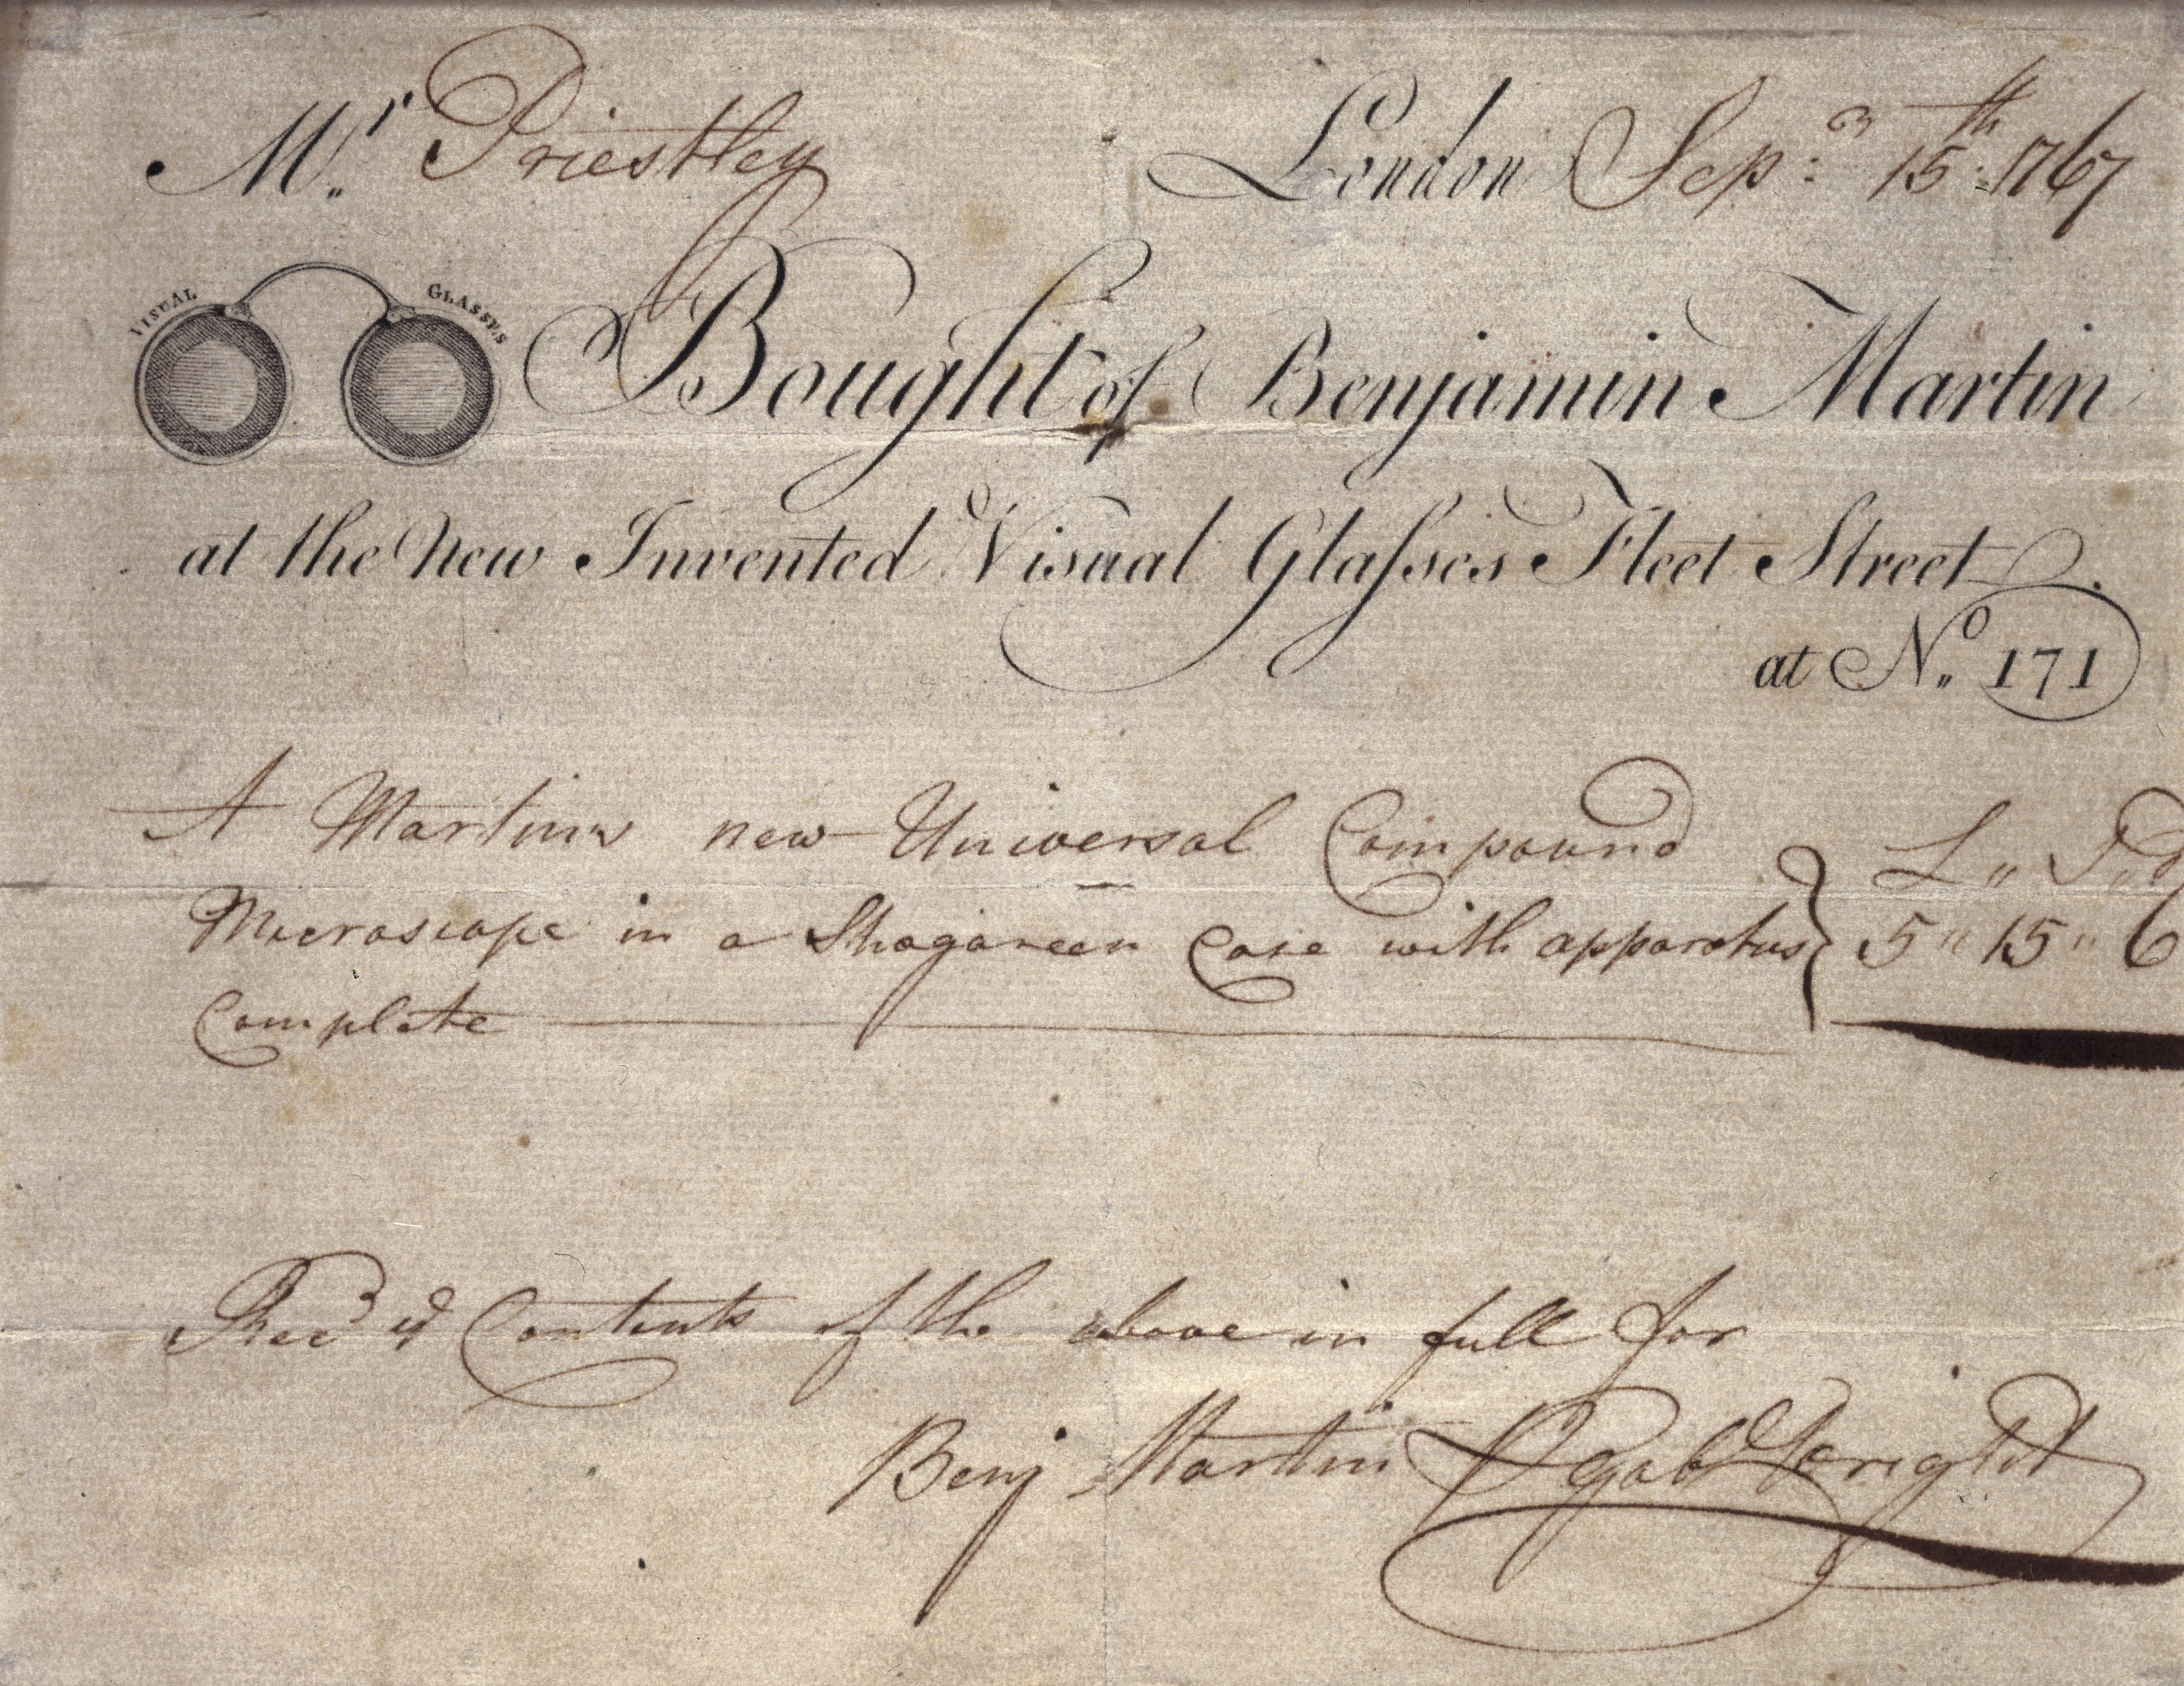 Mr. Priestley London Sepr: 15th: 1767
VISUAL GLASSES
Bought of Benjamin Martin
at the New Invented Visual Glaſses Fleet Street.
at No. 171
A Martins new Universal Compound
Microscope in a Shagareen Case with apparatus } L " S " D
5 " 15 " 6
Complete
Recd ye Contents of the above in full for
Benj Martin Gab Wright